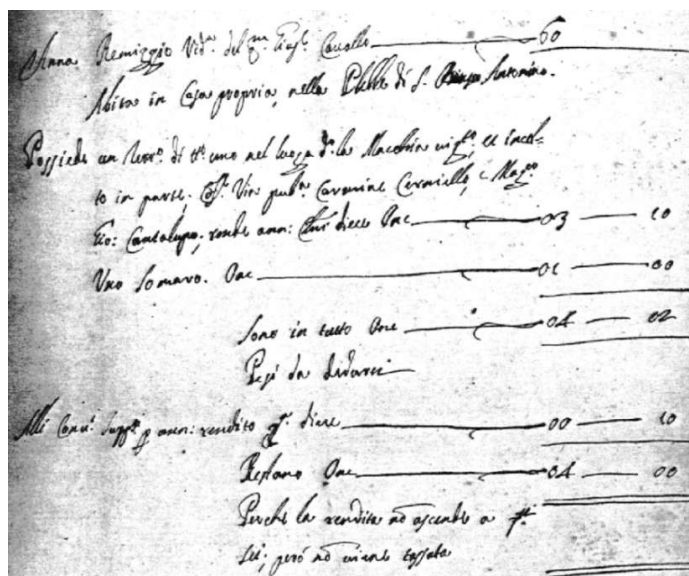 Anna Remiggio Vid.ª del qm. Biag.º Cavallo 60
Abita in Casa propria, nella Platea di S. Antonino.
Possiede un Terr.º di tt.º uno nel luogo d.º la Macchia vig.to, et incol-
to in parte, Via pub.ª Carmine Carniello, e Mag.co
Gio: Cantalupo, rende ann: diece Onc 03 10
Uno Somaro. Onc 01 00
Sono in tutto Onc 04 02
Pesi da dedursi
Alli ann: rendito diece 00 10
Restano Onc 04 00
Perche la rendita nō ascende a
sei, però nō viene tassata